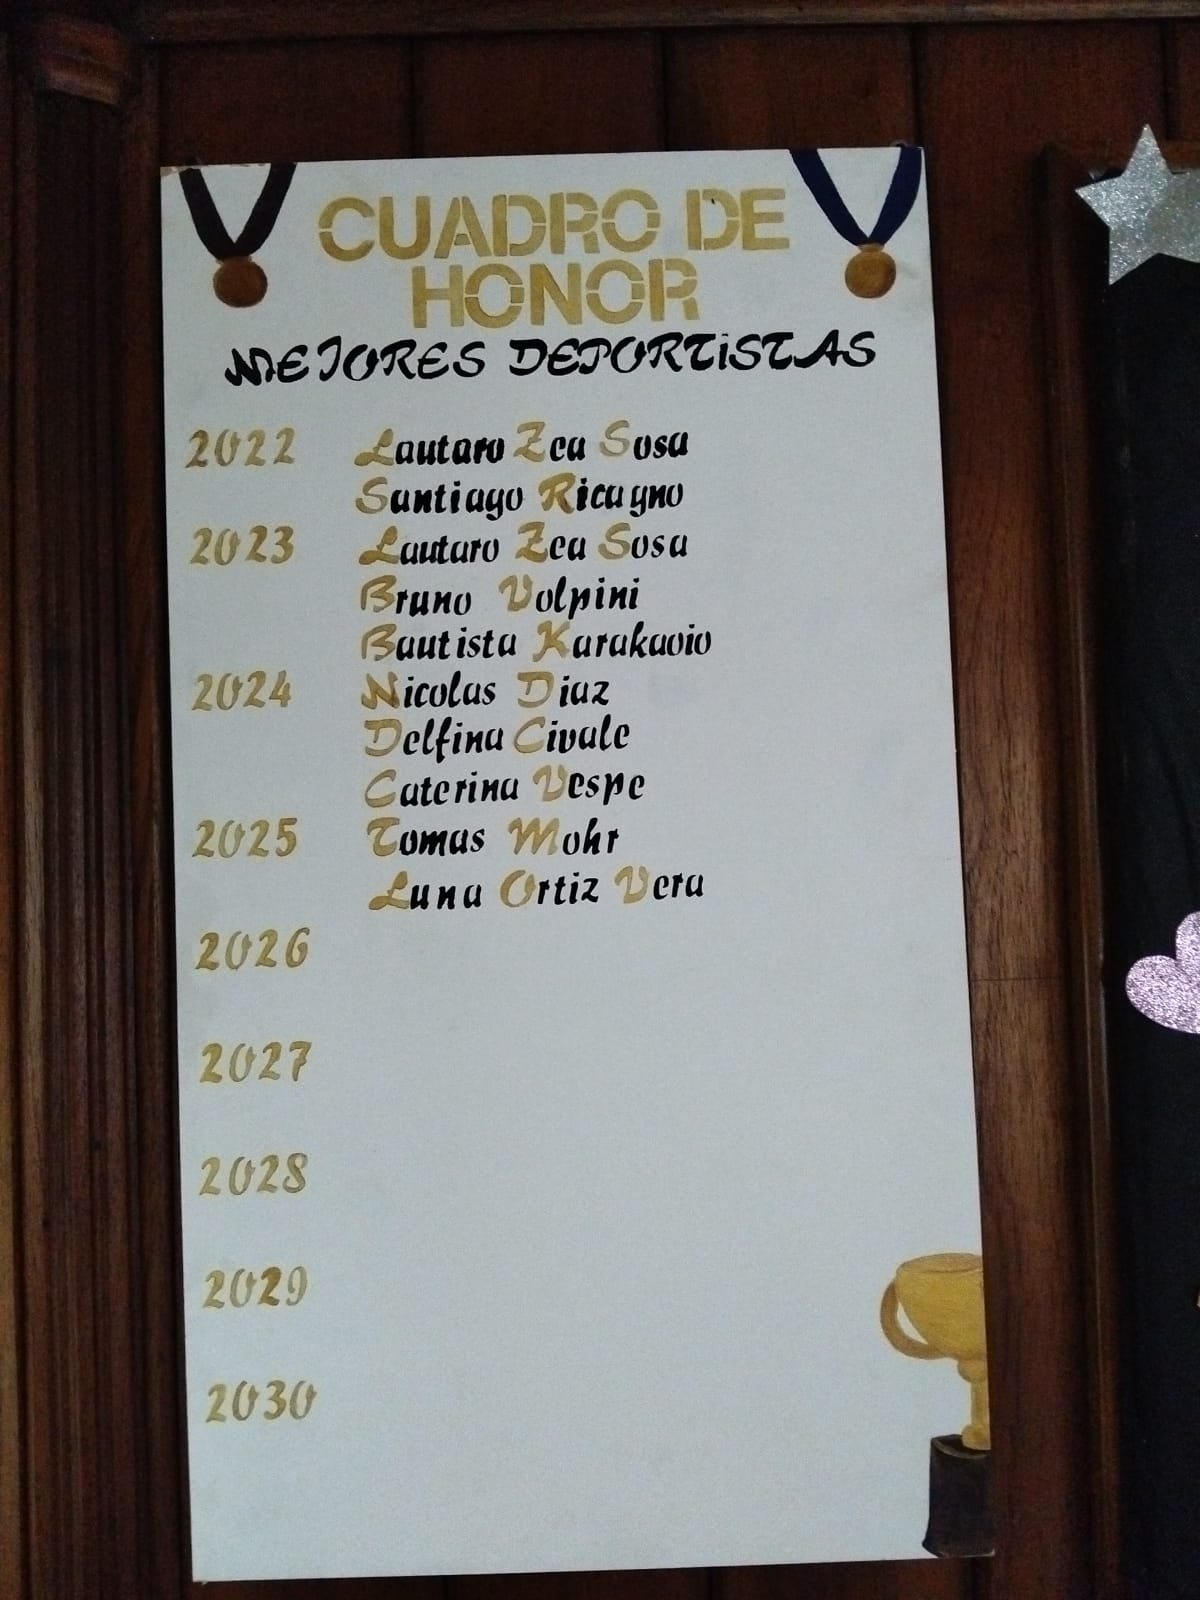 CUADRO DE
HONOR
MEJORES DEPORTiSTAS
2022 Lautaro Zea Sosa
Santiago Ricagno
2023 Lautaro Zea Sosa
Bruno Volpini
Bautista Karakaoio
2024 Nicolas Diaz
Delfina Civale
Caterina Vespe
2025 Tomas Mohr
Luna Ortiz Vera
2026
2027
2028
2029
2030